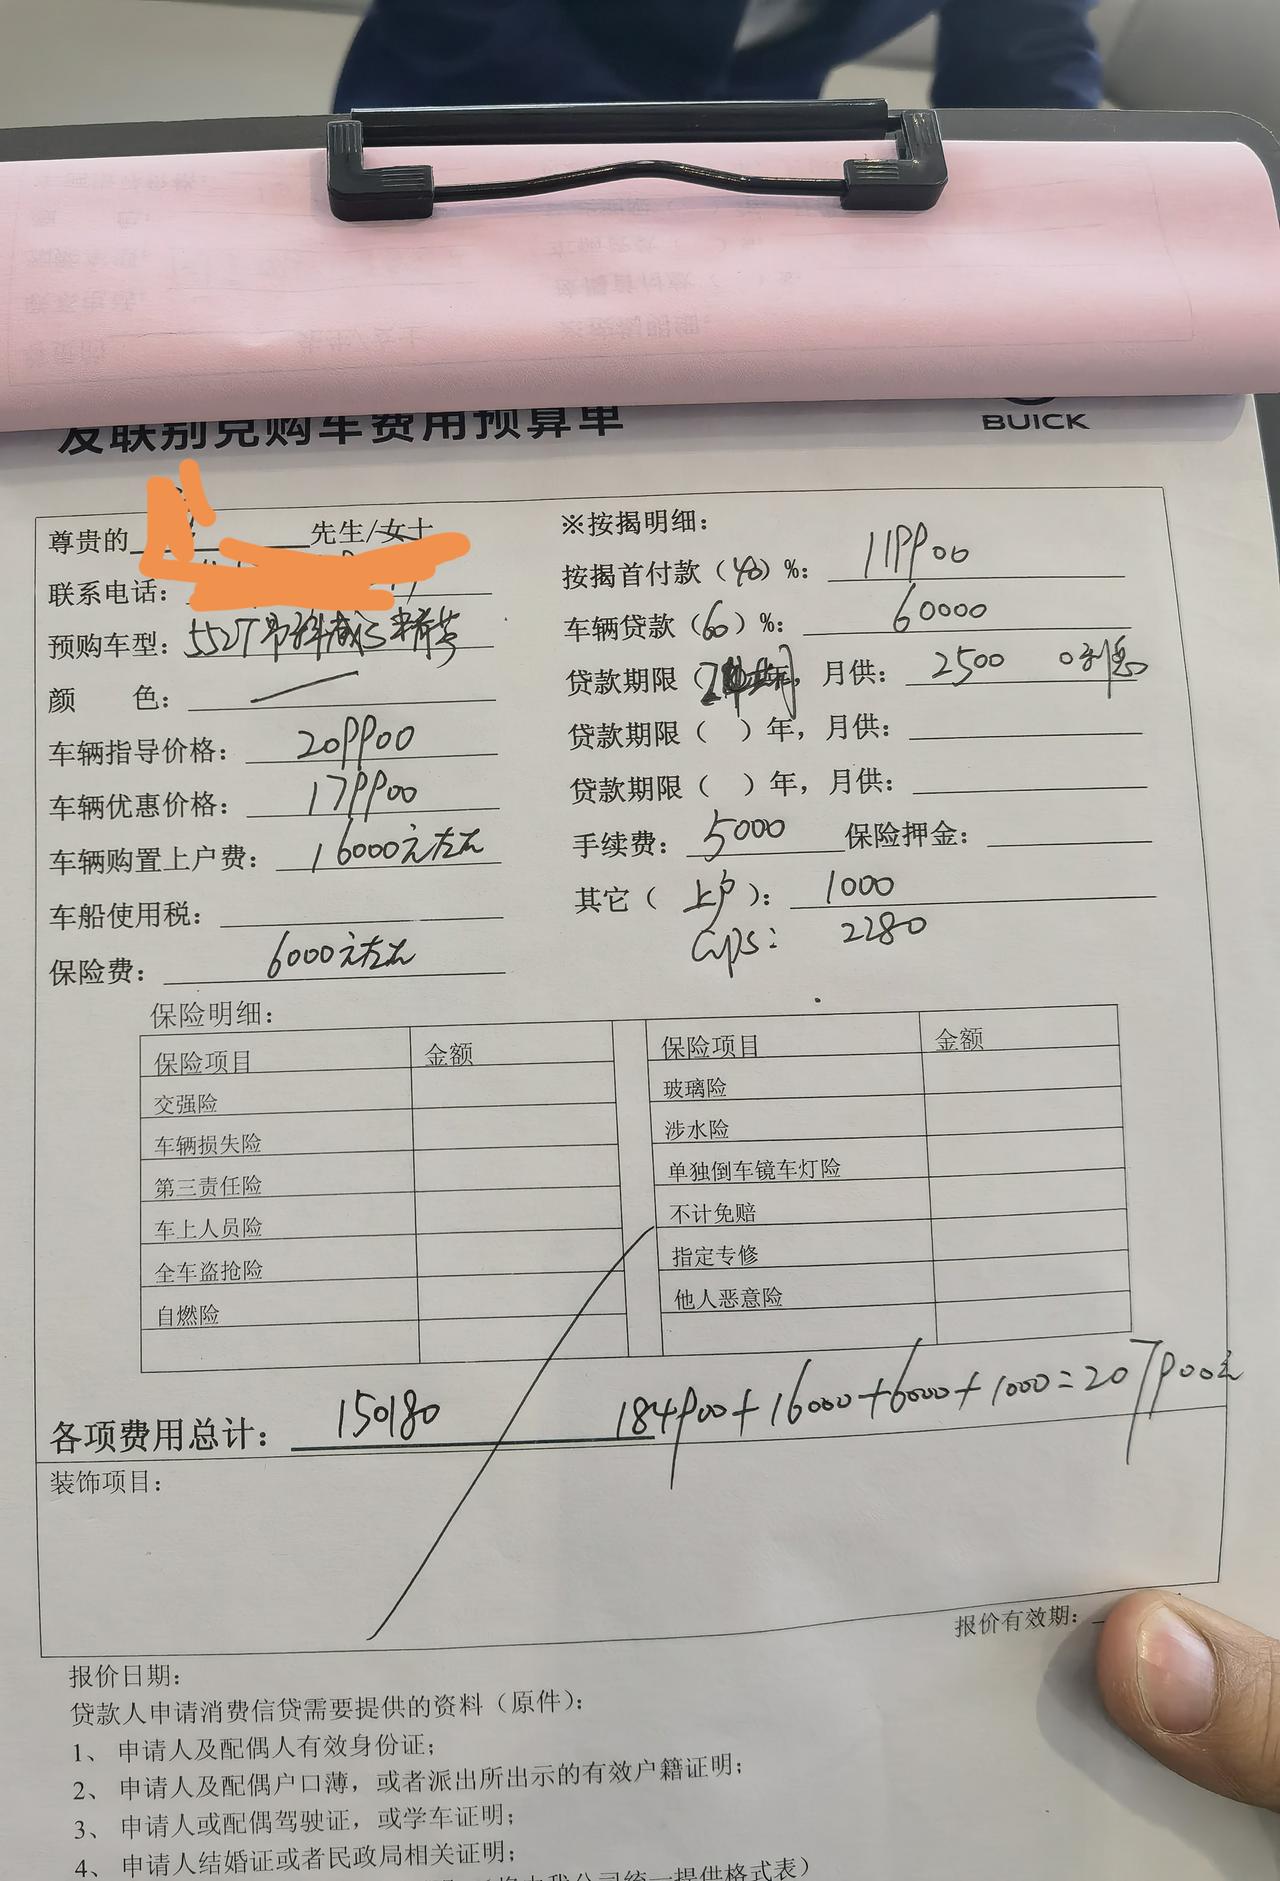 友联别克购车费用预算单
BUICK
尊贵的 先生/女士
联系电话：
预购车型：552T 昂科威S 精英
颜 色：
车辆指导价格：209900
车辆优惠价格：179900
车辆购置上户费：16000元左右
车船使用税：
保险费：6000元左右
※按揭明细：
按揭首付款（40）%：119900
车辆贷款（60）%：60000
贷款期限（2年，月供：2500 0利息
贷款期限（ ）年，月供：
贷款期限（ ）年，月供：
手续费：5000 保险押金：
其它（上户）：1000
GPS：2280
保险明细：
保险项目 金额 保险项目 金额
交强险 玻璃险
车辆损失险 涉水险
第三责任险 单独倒车镜车灯险
车上人员险 不计免赔
全车盗抢险 指定专修
自燃险 他人恶意险
各项费用总计：150180 184900+16000+6000+1000=207900元
装饰项目：
报价有效期：
报价日期：
贷款人申请消费信贷需要提供的资料（原件）：
1、 申请人及配偶人有效身份证；
2、 申请人及配偶户口薄，或者派出所出示的有效户籍证明；
3、 申请人或配偶驾驶证，或学车证明；
4、 申请人结婚证或者民政局相关证明；
我公司统一提供格式表）